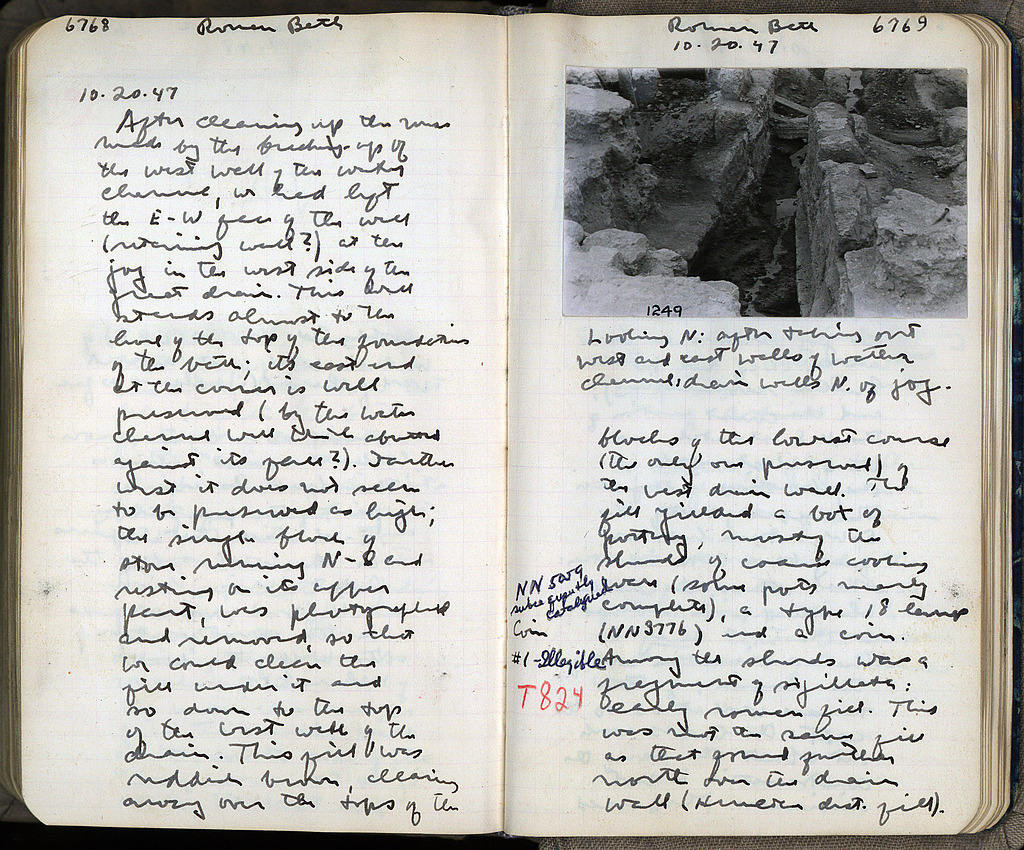 6768 Roman Bath
10.20.47
After cleaning up the mess
made by the breaking-up of
the west wall of the water
channel, we had left
the E-W face of the wall
(retaining wall?) at the
jog in the west side of the
great drain. This wall
stands almost to the
level of the top of the foundations
of the bath; its east end
at the corner is well
preserved (by the water
channel wall built
against its face?). Farther
west it does not seem
to be preserved as high;
the single block of
stone running N-S and
resting on its upper
part, was photographed
and removed, so that
we could clean the
fill under it and
so down to the top
of the west wall of the
drain. This fill was
reddish brown, clearing
away over the tops of the
Roman Bath 6769
10.20.47
1249
Looking N: after taking out
west and east walls of water
channel; drain walls N. of jog.
blocks of the lowest course
(the only one preserved) of
the west drain wall. The
fill yielded a box of
pottery, mostly the
sherds of coarse cooking
ware (some pots nearly
complete), a type 18 lamp
(NN3776) and a coin.
Among the sherds was a
fragment of sigillata:
early roman fill. This
was not the same fill
as that found further
north over the drain
wall (Herulian dest. fill).
NN 5009
subsequently
catalogued
Coin
#1-Illegible
T824